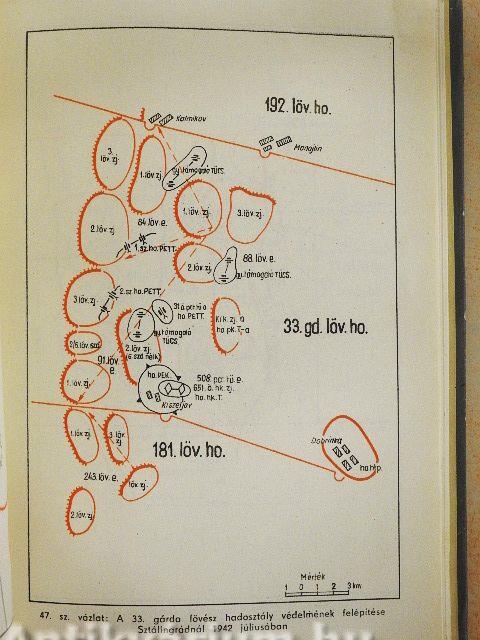 192. löv. ho.
Kalmikov
Manojlin
3.
löv. zj.
1. löv. zj.
gy. támogató TÜCS.
1. löv. zj.
3. löv. zj.
2. löv. zj.
84. löv. e.
1. sz. ho. PETT.
2. löv. zj.
88. löv. e.
gy. támogató TÜCS.
3. löv. zj.
2. sz. ho. PETT.
ho PETT.
gy. támogató
TÜCS.
Kik. zj. a
ho pk. T-a
33. gd. löv. ho.
91. löv.
e.
2. löv. zj.
(6. szd nélk)
1. löv. zj.
ho. PEK.
508. pct. tü. e.
651. ö. hk. zj.
ho. hk. T.
Kiszeljov
1. löv. zj.
3. löv.
zj.
181. löv. ho.
243. löv. e.
löv. zj.
2. löv. zj.
Dobrinka
ho htp.
Mérték
1 0 1 2 3 km
47. sz. vázlat: A 33. gárda lövész hadosztály védelmének felépítése
Sztálingrádnál 1942 júliusában